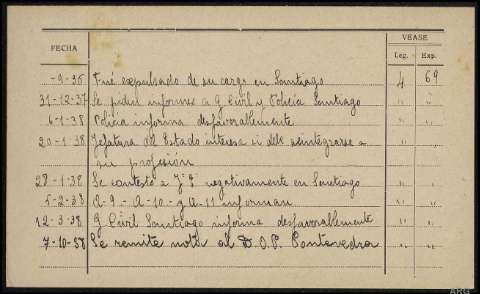 VEASE
FECHA Leg. Exp.
-9-36 Fué expulsado de su cargo en Santiago 4 69
31-12-37 Se piden informes a G Civil y Policía Santiago " "
6-1-38 Policía informa desfavorablemente " "
20-1-38 Jefatura del Estado interesa si debe reintegrarse a " "
su profesión
28-1-38 Se contestó a J. E. negativamente en Santiago " "
5-2-38 A-9- A-10- y A-11 informan " "
12-3-38 G Civil Santiago informa desfavorablemente " "
7-10-38 Se remite nota al D.O.P. Pontevedra " "
ARG